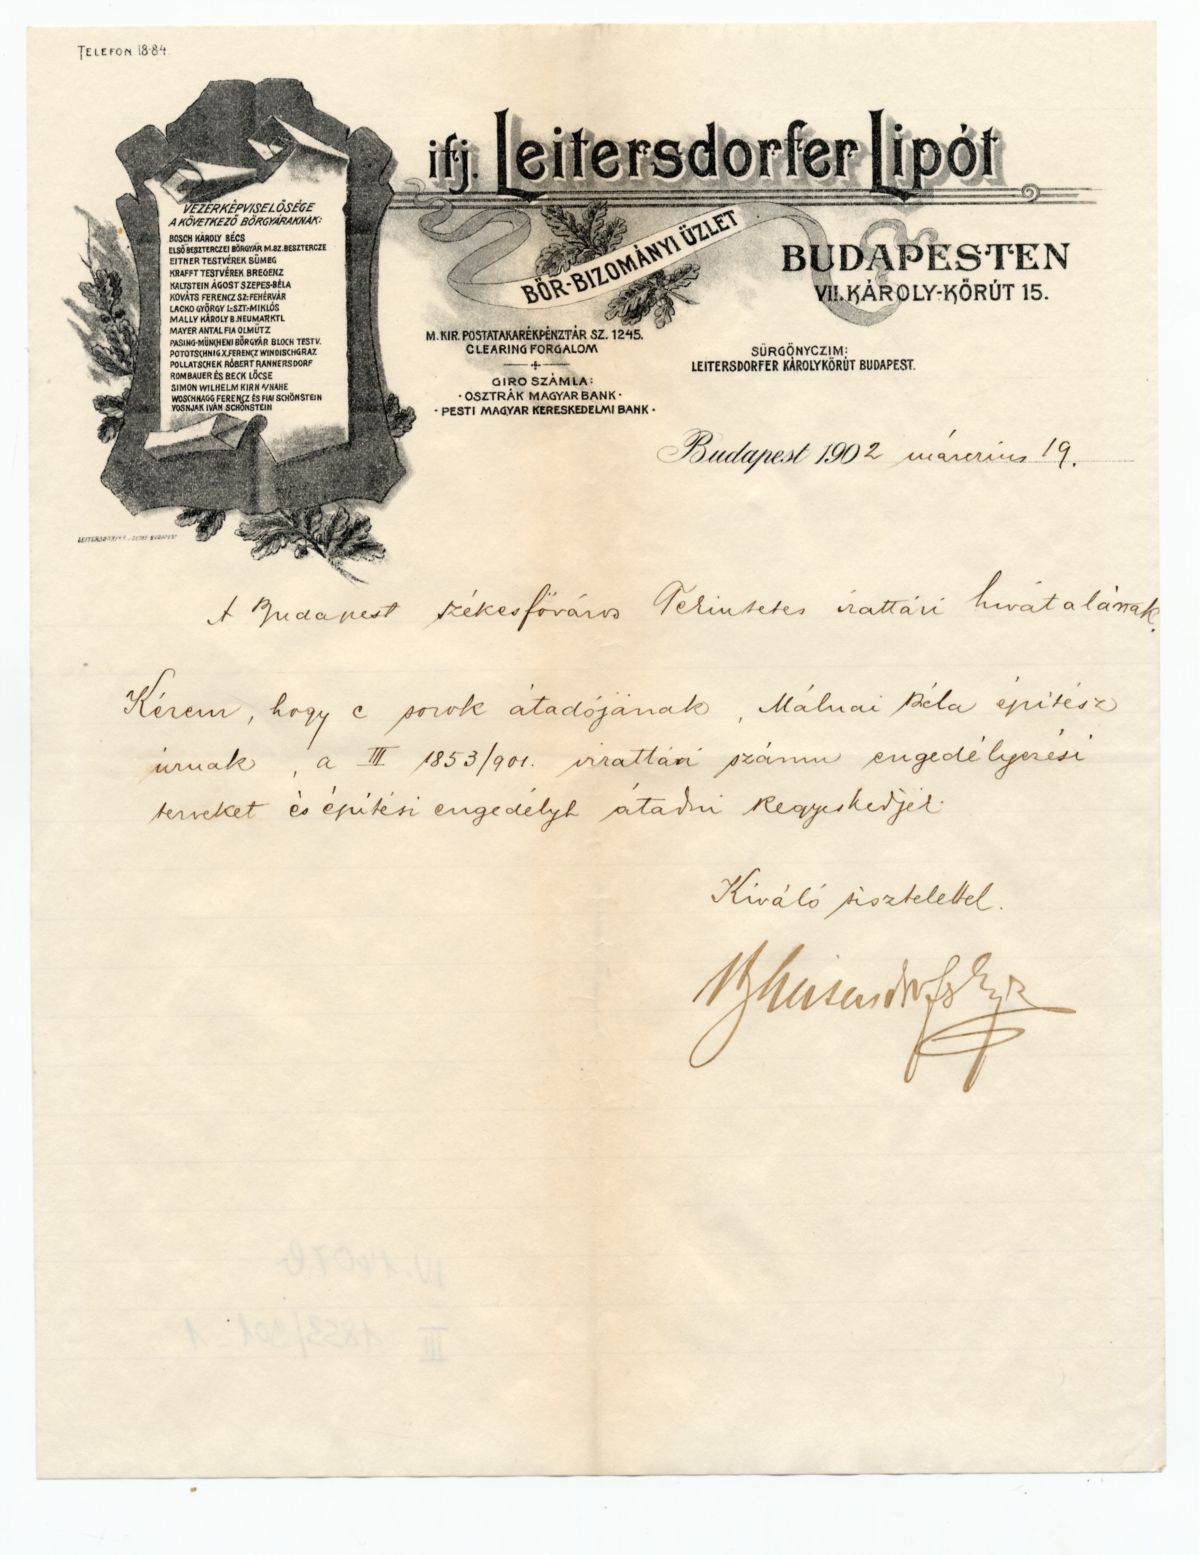 TELEFON 18-84.
ifj. Leitersdorfer Lipót
BŐR-BIZOMÁNYI ÜZLET
BUDAPESTEN
VII. KÁROLY-KÖRÚT 15.
VEZÉRKÉPVISELŐSÉGE
A KÖVETKEZŐ BŐRGYÁRAKNAK:
BOSCH KÁROLY BÉCS
ELSŐ BESZTERCZEI BŐRGYÁR M. BZ. BESZTERCZE
EITNER TESTVÉREK SÜMEG
KRAFFT TESTVÉREK BREGENZ
KALTSTEIN ÁGOST SZEPES-BÉLA
KOVÁTS FERENCZ SZ: FEHÉRVÁR
LACKO GYÖRGY L: SZT.-MIKLÓS
MALLY KÁROLY B. NEUMARKTL
MAYER ANTAL FIA OLMÜTZ
PASING-MÜNCHENI BŐRGYÁR BLOCH TESTV.
POTOTSCHNIG X. FERENCZ WINDISCHGRAZ
POLLATSCHEK RÓBERT RANNERSDORF
ROMBAUER ÉS BECK LŐCSE
SIMON WILHELM KIRN A/NAHE
WOSCHNAGG FERENCZ ÉS FIAI SCHÖNSTEIN
VOSNJAK IVÁN SCHÖNSTEIN
M. KIR. POSTATAKARÉKPÉNZTÁR SZ. 1245.
CLEARING FORGALOM
GIRO SZÁMLA:
· OSZTRÁK MAGYAR BANK ·
· PESTI MAGYAR KERESKEDELMI BANK ·
SÜRGÖNYCZIM:
LEITERSDORFER KÁROLYKÖRÚT BUDAPEST.
Budapest 1902 márczius 19.
A Budapest székesfőváros Tekintetes irattári hivatalának.
Kérem, hogy e sorok átadójának, Málnai Béla építész
úrnak, a III 1853/901. irattári számu engedélyezési
terveket és építési engedélyt átadni kegyeskedjék.
Kiváló tisztelettel.
IV. 1407 b
III 1853/901-1